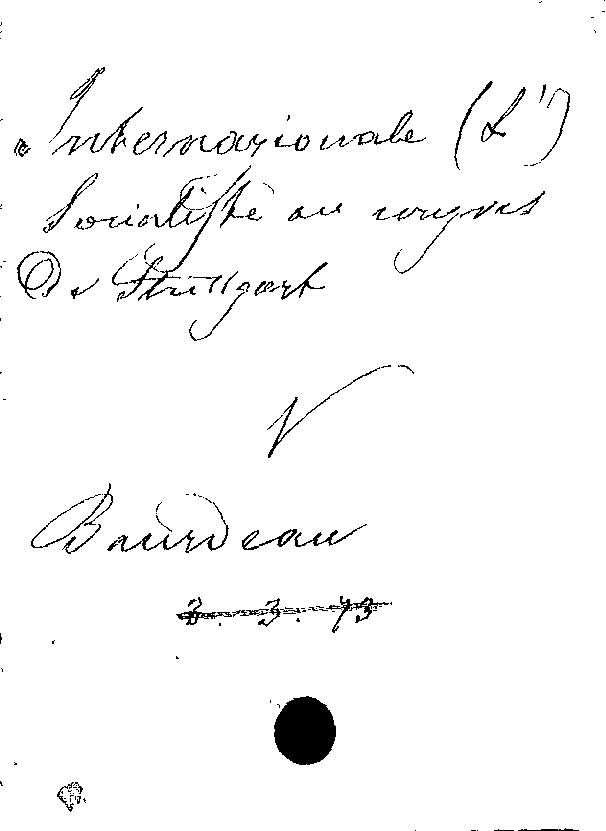 Internazionale (L')
Socialiste au congrés
De Stuttgart
V
Bourdeau
3. 3. 73